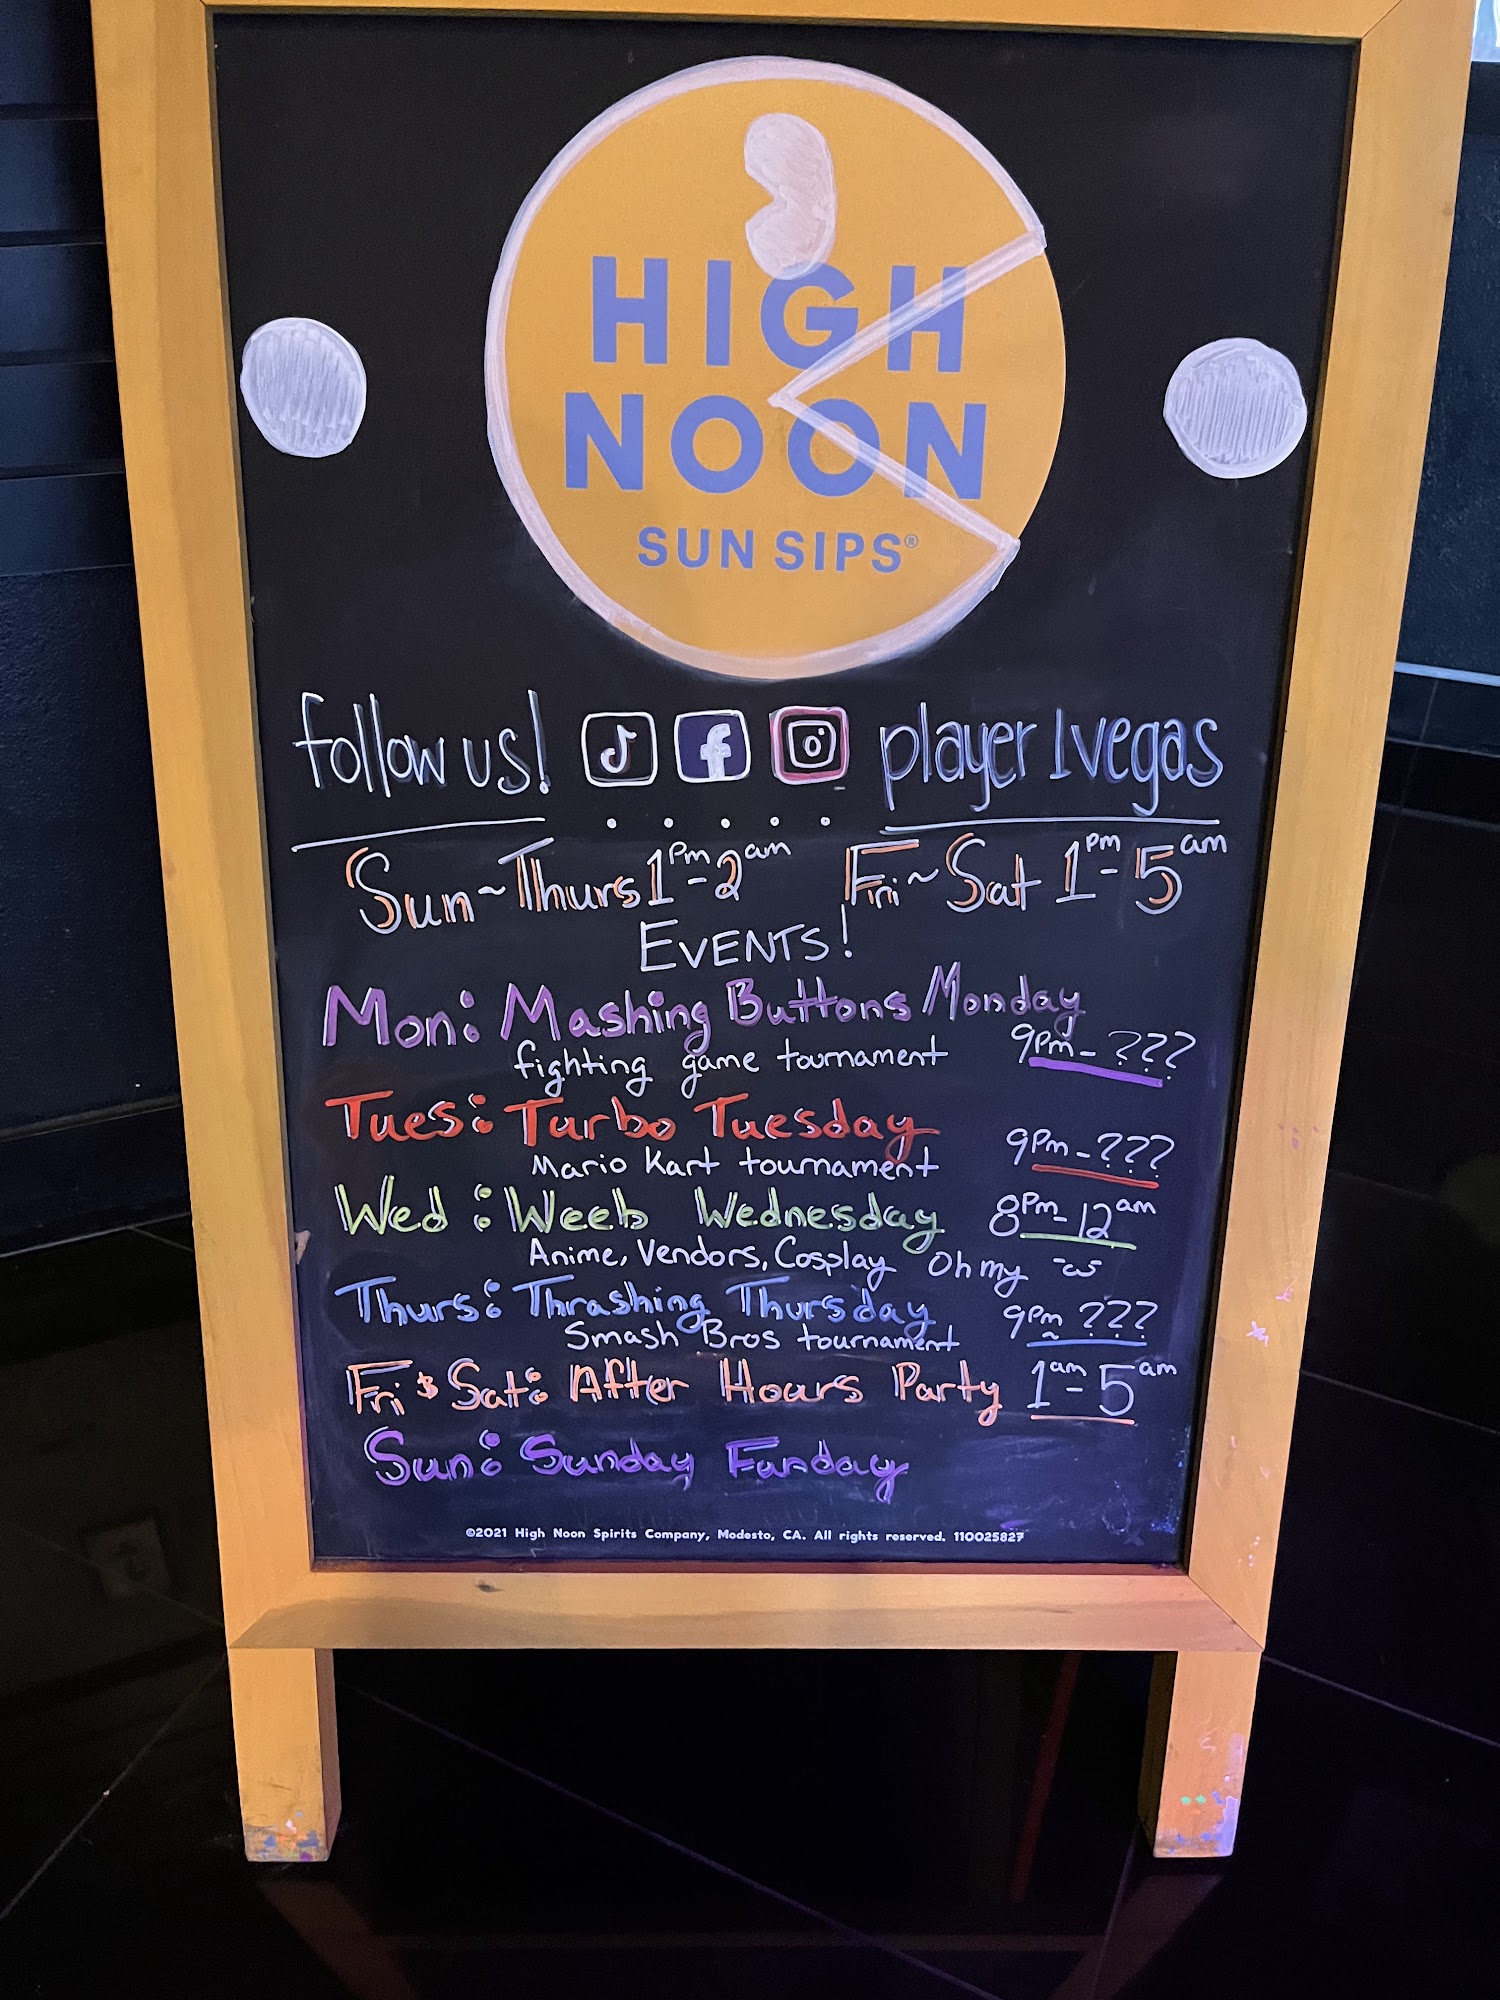 HIGH
NOON
SUN SIPS®
follow us! player1vegas
Sun~Thurs 1pm-2am Fri~Sat 1pm-5am
EVENTS!
Mon: Mashing Buttons Monday
fighting game tournament 9pm-???
Tues: Turbo Tuesday
Mario Kart tournament 9pm-???
Wed: Weeb Wednesday 8pm-12am
Anime, Vendors, Cosplay Oh my
Thurs: Thrashing Thursday
Smash Bros tournament 9pm ~ ???
Fri & Sat: After Hours Party 1am-5am
Sun: Sunday Funday
©2021 High Noon Spirits Company, Modesto, CA. All rights reserved. 110025827